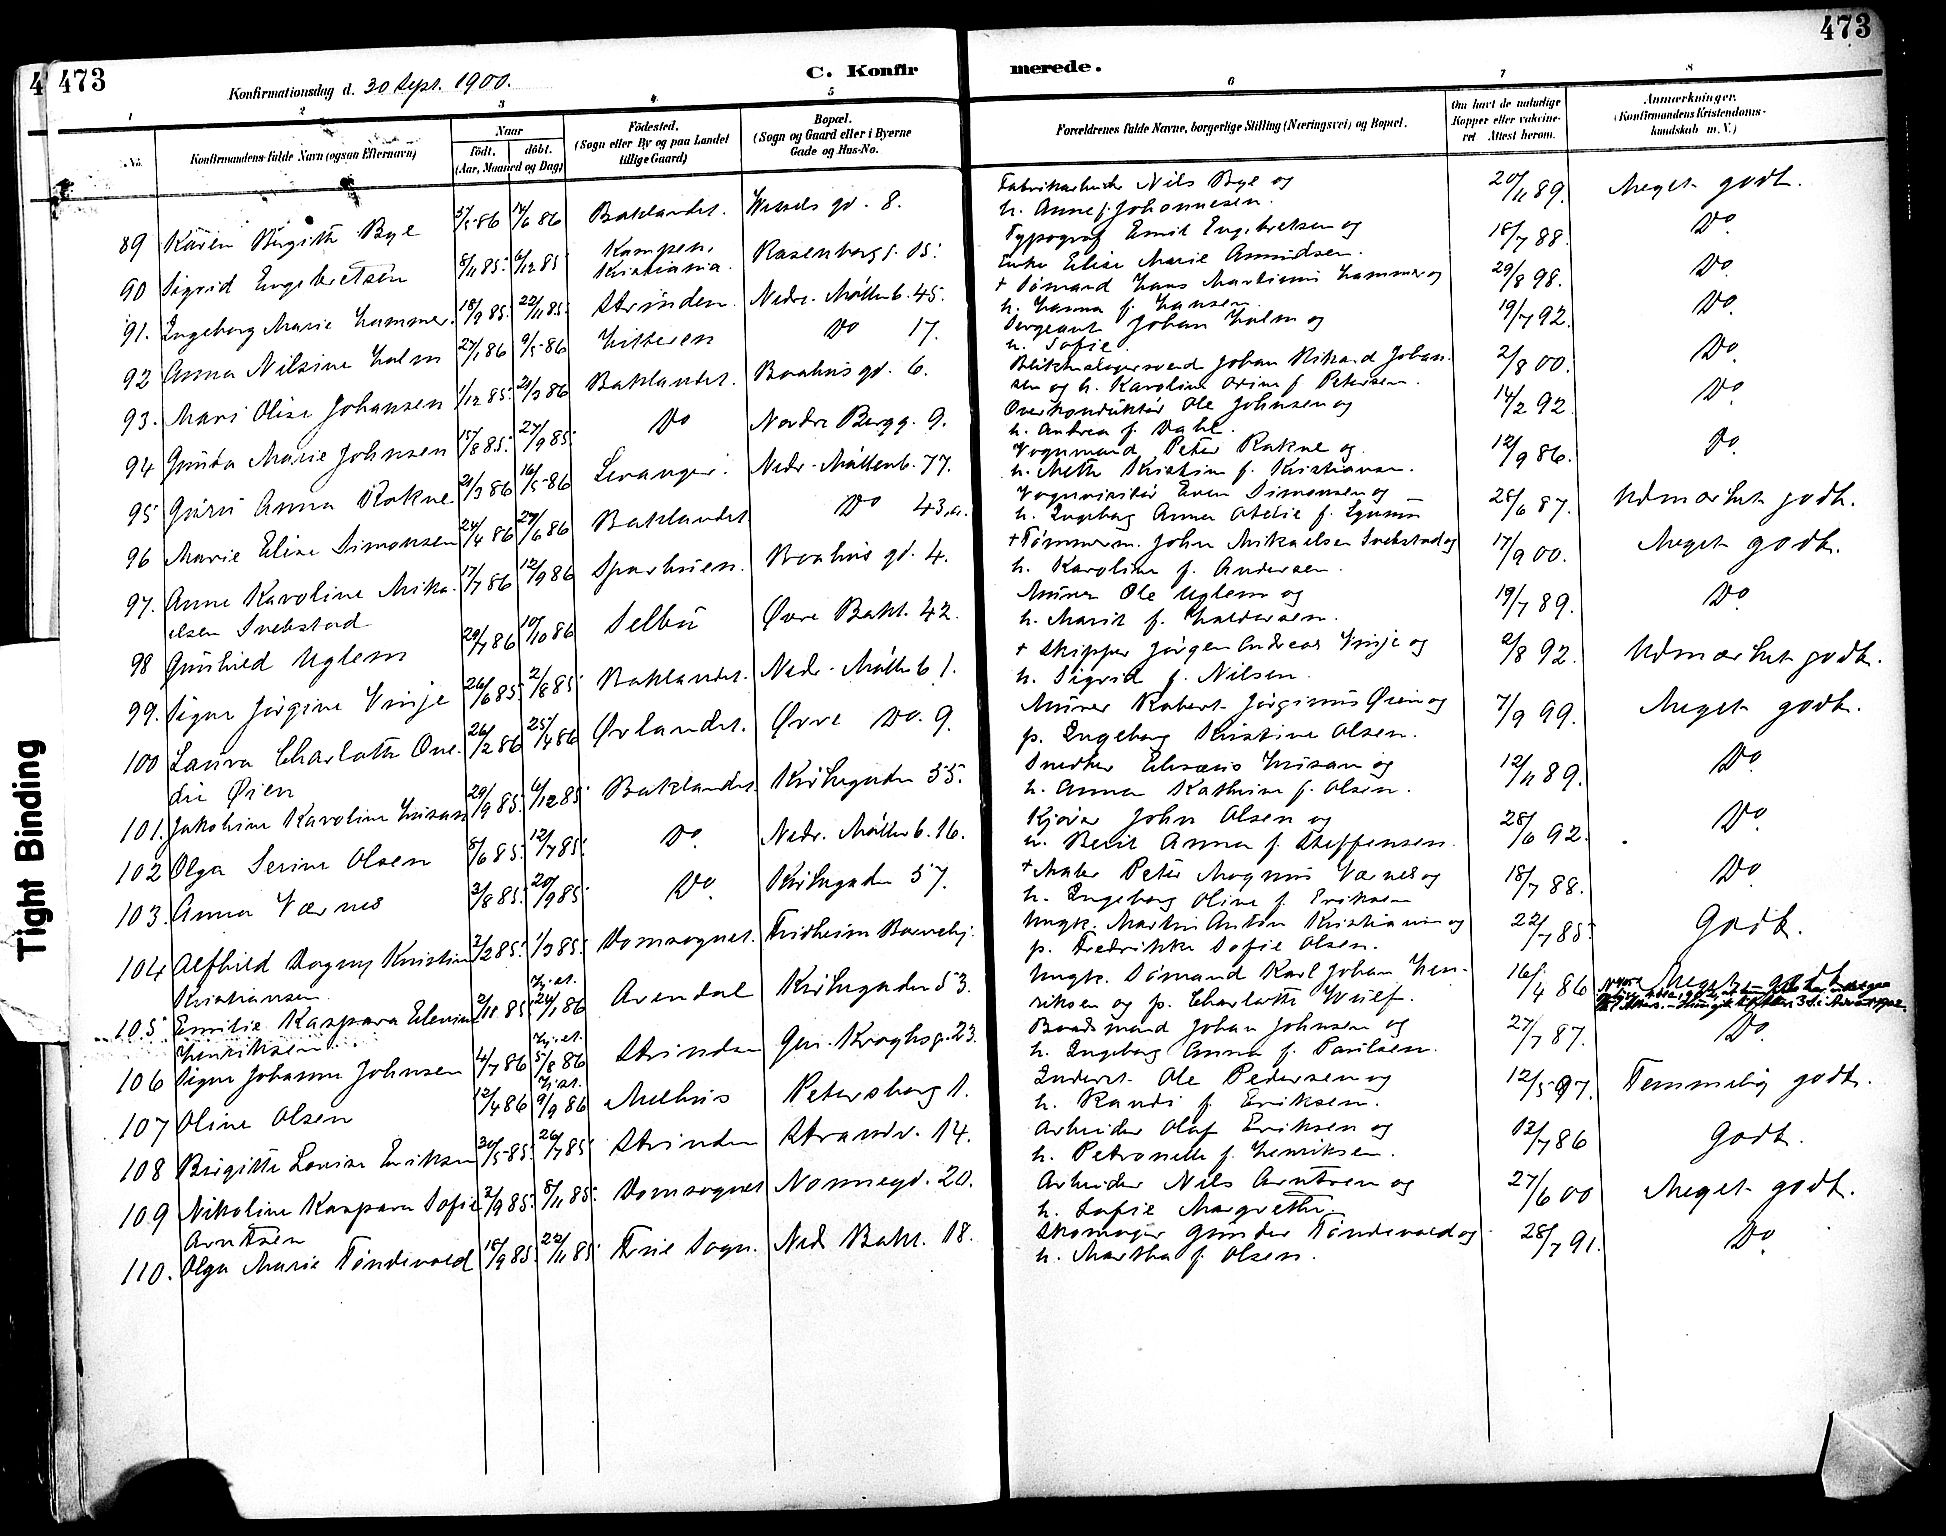 473
473
473
Konfirmationsdag d. 30 Sept. 1900.
C. Konfirmerede.
1 2 3 4 5 6 7 8
No.
Konfirmandens fulde Navn (ogsaa Efternavn)
Naar
født, døbt.
(Aar, Maaned og Dag)
Fødested.
(Sogn eller By og paa Landet
tillige Gaard)
Bopæl.
(Sogn og Gaard eller i Byerne
Gade og Hus-No.
Forældrenes fulde Navne, borgerlige Stilling (Næringsvei) og Bopæl.
Om havt de naturlige
Kopper eller vaccine-
ret Attest herom.
Anmærkninger.
(Konfirmandens Kristendoms-
kundskab m. V.)
89 Karen Birgitte Bye 14/6 86 Baklandet. Wessels gd. 8. Fabrikarbeider Nils Bye og
h. Anne f. Johannesen. 20/11 89. Meget godt.
90 Sigrid Engebretsen 8/11 85. 6/12 85 Kampen,
Kristiania. Rosenborg 15. Typograf Emil Engebretsen og
Elise Marie Amundsen. 18/7 88. Do.
91. Ingeborg Marie Hammer. 18/9 85. 22/11 85. Strinden. Nedre Møllenb. 45. + Sømand Hans Martinius Hammer og
h. Hanna f. Hansen. 29/8 98. Do.
92 Anna Nilsine Holm 27/1 86 9/5 86 Hitteren Do 17. Sergeant Johan Holm og
h. Sofie. 19/7 92. Do.
93. Mari Olise Johansen 1/12 85. 21/3 86 Baklandet. Baahus gd. 6. Blikkenslagersvend Johan Rikard Johan-
sen og h. Karoline f. Petersen. 2/8 00. Do.
94 Gunda Marie Johnsen 15/8 85. 27/9 85. Do Nordre Bergg. 9. Overkonduktør Ole Johnsen og
h. Andrea f. Dahl. 14/2 92. Do.
95 Guru Anna Rokne 21/3 86 16/5 86 Levanger. Nedr. Møllenb. 77. Vognmand Peter Rokne og
h. Mette Kristine f. Kristiansen. 12/9 86. Do.
96 Marie Elise Simonsen 24/4 86 27/6 86 Baklandet Do 43a. Vognvisitør Even Simonsen og
h. Ingeborg Anna Otelie f. 28/6 87. Udmærket godt.
97. Anne Karoline Mika-
elsen Svebstad 17/7 86 12/9 86 Sparbuen. Baahus gd. 4. + Tømmerm. John Mikaelsen Svebstad og
h. Karoline f. Andersen. 17/9 00. Meget godt.
98 Gunhild Uglem 29/7 86 10/10 86 Selbu Øvre Bakl. 42. Murer Ole Uglem og
h. Marit f. Haldorsen. 19/7 89. Do.
99. Signe Jørgine Vinje 26/6 85. 2/8 85. Baklandet. Nedr. Møllenb 1. + Skipper Jørgen Andreas Vinje og
h. Sigrid f. Nilsen. 2/8 92. Udmærket godt.
100 Laura Charlotte Ove-
die Øien 26/2 86 25/4 86 Ørlandet. Øvre Do. 9. Murer Robert Jørginus Øien og
p. Ingeborg Kristine Olsen. 7/9 99. Meget godt.
101. Jakobine Karoline Husan 29/9 85. 6/12 85 Baklandet Kirkegaden 55. Snedker Elisæus Husan og
h. Anna Kathrine f. Olsen. 12/11 89. Do.
102 Olga Serine Olsen 8/6 85. 12/7 85. Do. Nedr. Møllenb. 16. Kjører John Olsen og
h. Berit Anna f. Steffensen. 28/6 92. Do.
103. Anna Værnes 3/8 85. 20/9 85. Do. Kirkegaden 57. + Maler Peter Magnus Værnes og
h. Ingeborg Oline f. Eriksen 18/7 88. Do.
104 Alfhild Dagny Kristine
Kristiansen. 2/2 85. 1/3 85. Domsognet. Fridheim Børnehj. Ungk. Martin Anton Kristiansen og
p. Fredrikke Sofie Olsen. 22/7 85. Godt.
105 Emilie Kaspara Elevine
Henriksen. 2/11 85 24/1 86 Arendal Kirkegaden 53. Ungk. Sømand Karl Johan Hen-
riksen og p. Charlotte Wulf. 16/4 86 Meget godt
106 Signe Johanna Johnsen 4/7 86 5/8 86 Strinden Gen. Kroghsg. 23. Baadsmand Johan Johnsen og
h. Ingeborg Anna f. Paulsen. 27/7 87. Do.
107 Oline Olsen 12/4 86 9/9 86 Melhus Petersborg 1. Inderst Ole Pedersen og
h. Randi f. Eriksen. 12/5 97. Temmelig godt.
108 Birgitte Lovise Eriksen 30/5 85. 26/7 85 Strinden Strandv. 14. Arbeider Olaf Eriksen og
h. Petronelle f. Henriksen. 12/7 86 Godt.
109 Nikoline Kaspara Sofie
Arntsen 2/9 85. 8/11 85. Domsognet Nonnegd. 20. Arbeider Nils Arntsen og
h. Sofie Margrethe 27/6 00 Meget godt.
110. Olga Marie Tøndevold 18/9 85. 22/11 85. Frue Sogn. Ned. Bakl. 18. Skomager Gunder Tøndevold og
h. Martha f. Olsen. 28/7 91. Do.
Tight Binding